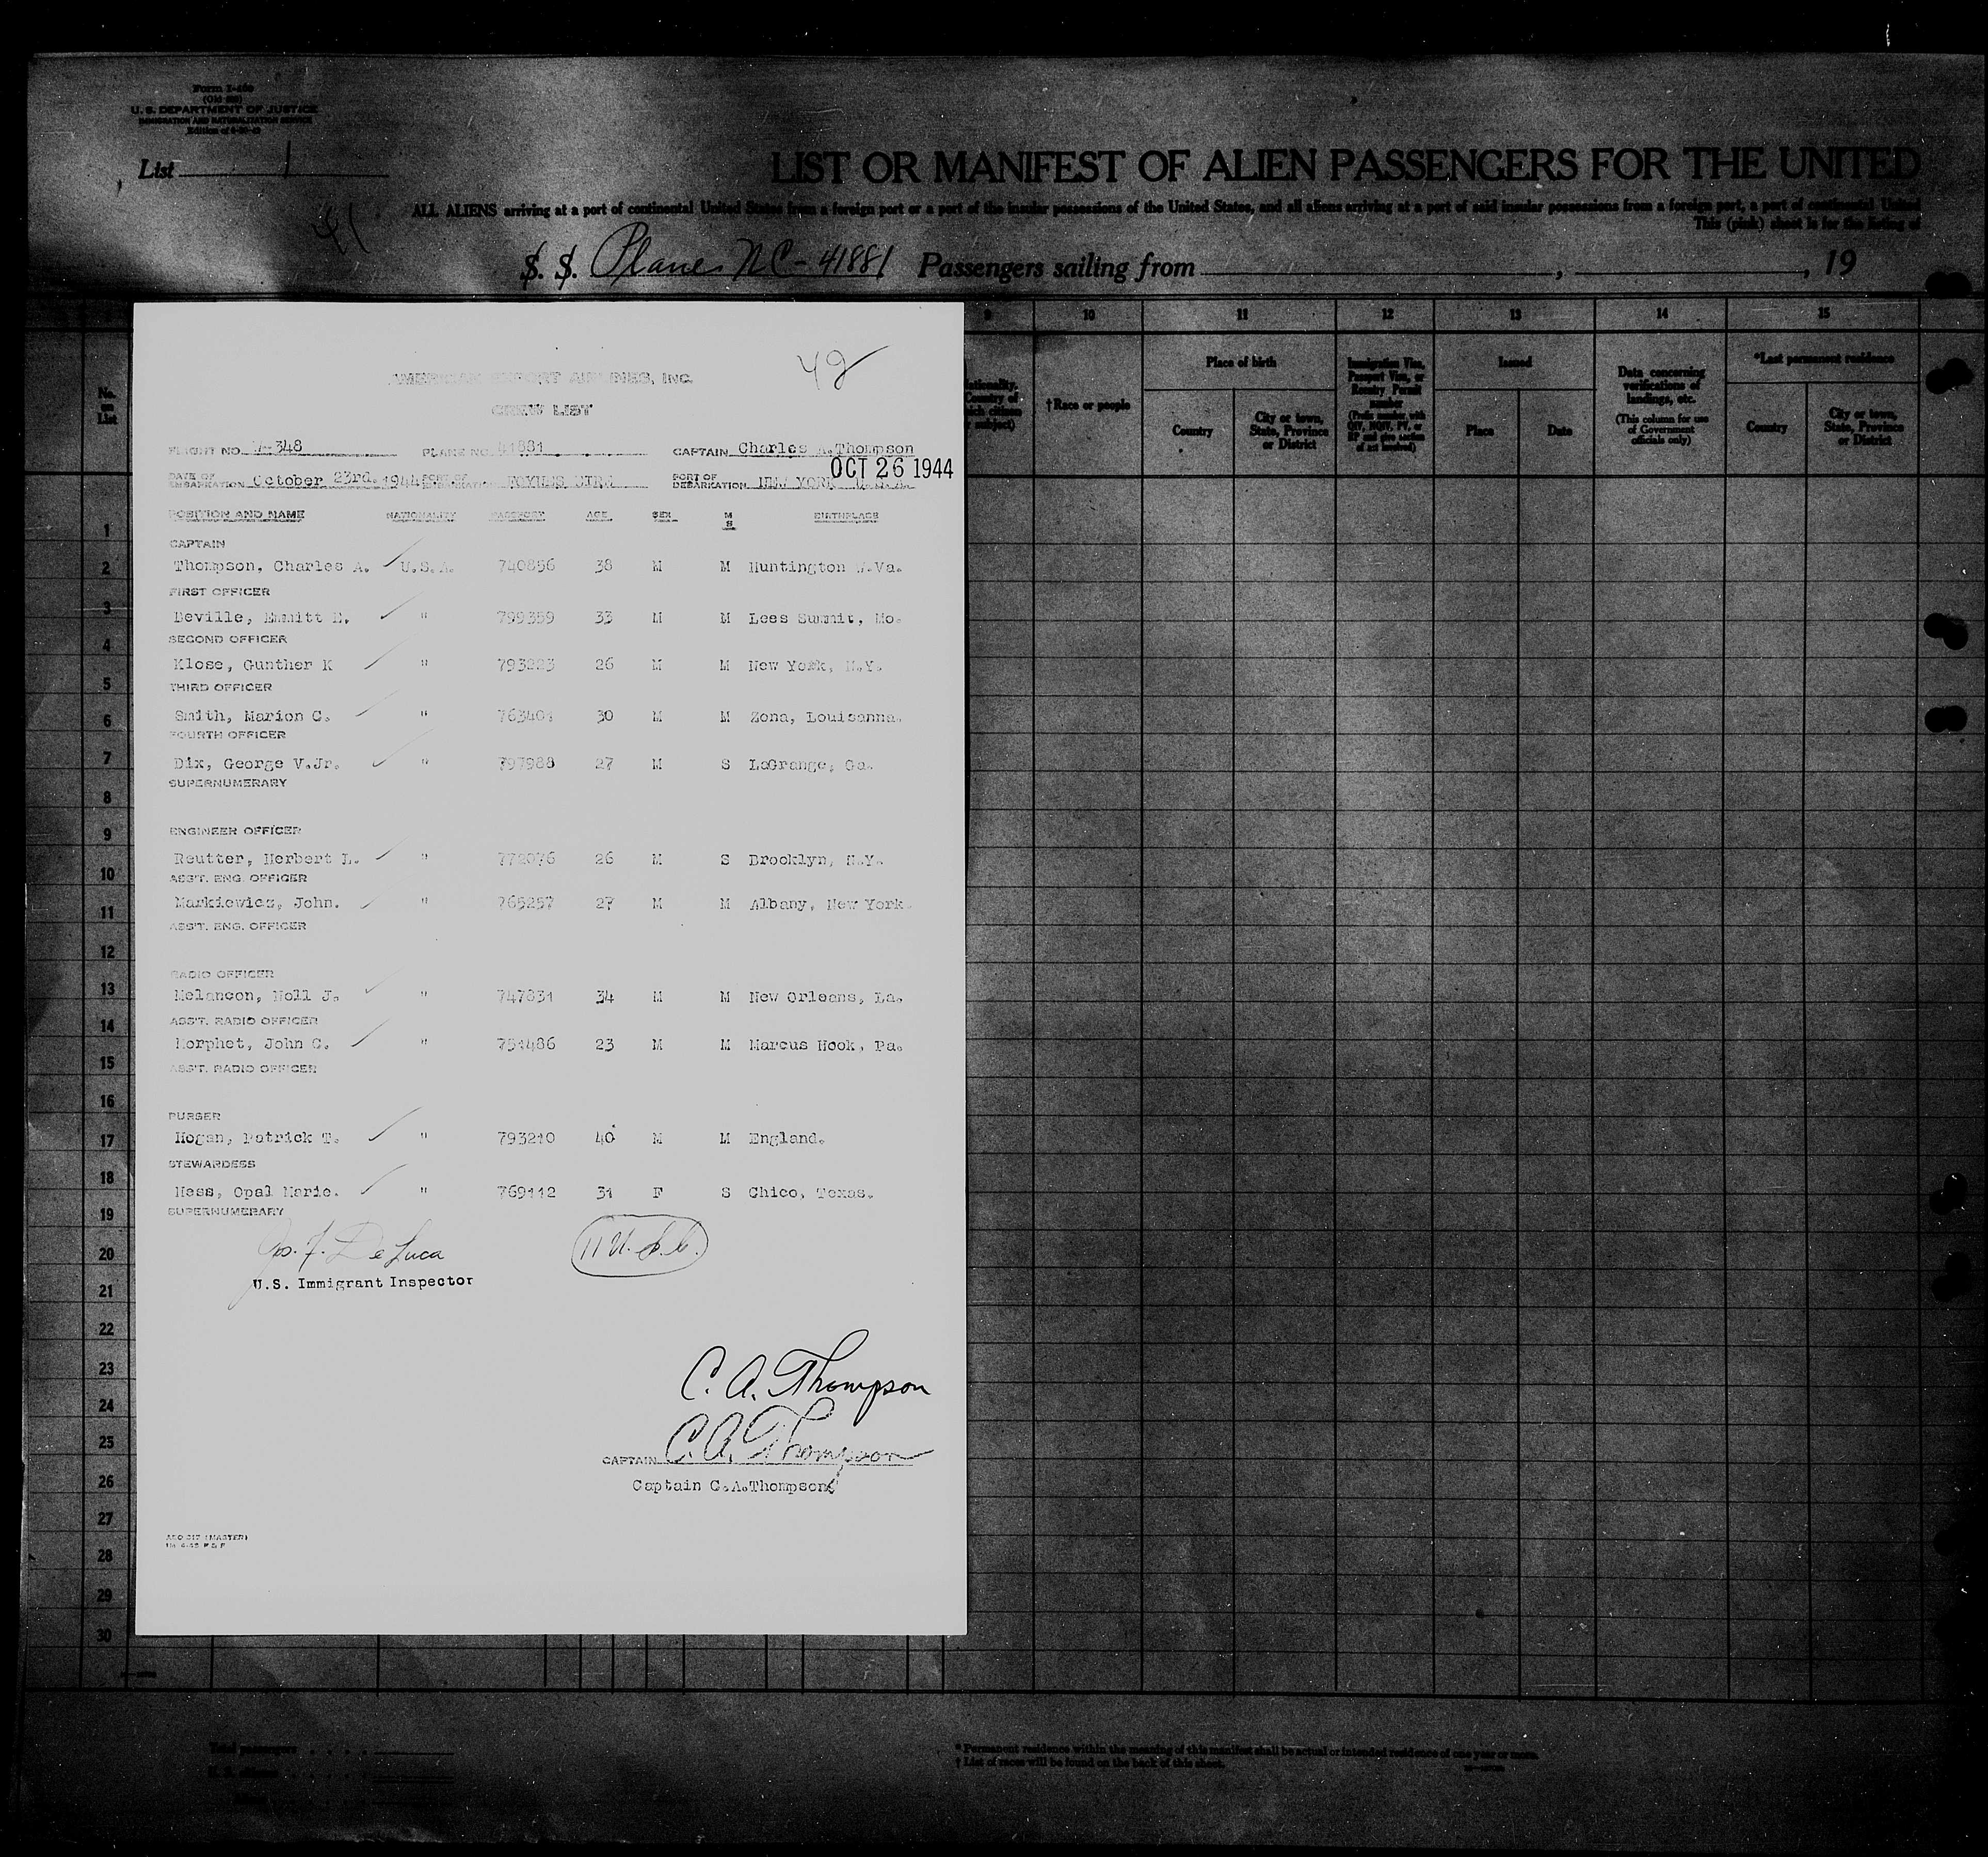 Form I-466
(Old 500)
U. S. DEPARTMENT OF JUSTICE
IMMIGRATION AND NATURALIZATION SERVICE
Edition of
List 1
41
LIST OR MANIFEST OF ALIEN PASSENGERS FOR THE UNITED
ALL ALIENS arriving at a port of continental United States from a foreign port or a port of the insular possessions of the United States, and all aliens arriving at a port of said insular possessions from a foreign port, a port of continental United
This (pink) sheet is for the listing of
S. S. Plane NC-41881 Passengers sailing from , , 19
No. on List
9 10 11 12 13 14 15
Nationality, Country of which citizen or subject)
†Race or people
Place of birth
Country
City or town, State, Province or District
Immigration Visa, Passport Visa, or Reentry Permit number
(Prefix number with QIV, NQIV, PV, or RP and give section of act involved)
Issued
Place
Date
Data concerning verifications of landings, etc.
(This column for use of Government officials only)
*Last permanent residence
Country
City or town, State, Province or District
1
2
3
4
5
6
7
8
9
10
11
12
13
14
15
16
17
18
19
20
21
22
23
24
25
26
27
28
29
30
42
AMERICAN EXPORT AIRLINES, INC.
CREW LIST
FLIGHT NO. 348 PLANE NO. 41881 CAPTAIN Charles A.Thompson
OCT 26 1944
DATE OF EMBARKATION October 23rd. 1944 PORT OF EMBARKATION FOYNES EIRE PORT OF DEBARKATION NEW YORK U.S.A.
POSITION AND NAME NATIONALITY PASSPORT AGE SEX M S BIRTHPLACE
CAPTAIN
Thompson, Charles A. U.S.A. 740856 38 M M Huntington W.Va.
FIRST OFFICER
Deville, Emmitt E. " 799359 33 M M Lees Summit, Mo.
SECOND OFFICER
Klose, Gunther K " 793223 26 M M New York, N.Y.
THIRD OFFICER
Smith, Marion C. " 763401 30 M M Zona, Louisanna.
FOURTH OFFICER
Dix, George V.Jr. " 797988 27 M S LaGrange, Ga.
SUPERNUMERARY
ENGINEER OFFICER
Reutter, Herbert L. " 772076 26 M S Brooklyn, N.Y.
ASS'T. ENG. OFFICER
Markiewicz, John. " 765257 27 M M Albany, New York.
ASS'T. ENG. OFFICER
RADIO OFFICER
Melancon, Noll J. " 747831 34 M M New Orleans, La.
ASS'T. RADIO OFFICER
Morphet, John C. " 751486 23 M M Marcus Hook, Pa.
ASS'T. RADIO OFFICER
PURSER
Hogan, Patrick T. " 793210 40 M M England.
STEWARDESS
Hess, Opal Marie. " 769112 31 F S Chico, Texas.
SUPERNUMERARY
Jos. F. De Luca
11 U.S.C.
U.S. Immigrant Inspector
C. A. Thompson
CAPTAIN C. A. Thompson
Captain C.A.Thompson
AEO 317 (MASTER)
Total passengers
U. S. citizens
* Permanent residence within the meaning of this manifest shall be actual or intended residence of one year or more.
† List of races will be found on the back of this sheet.